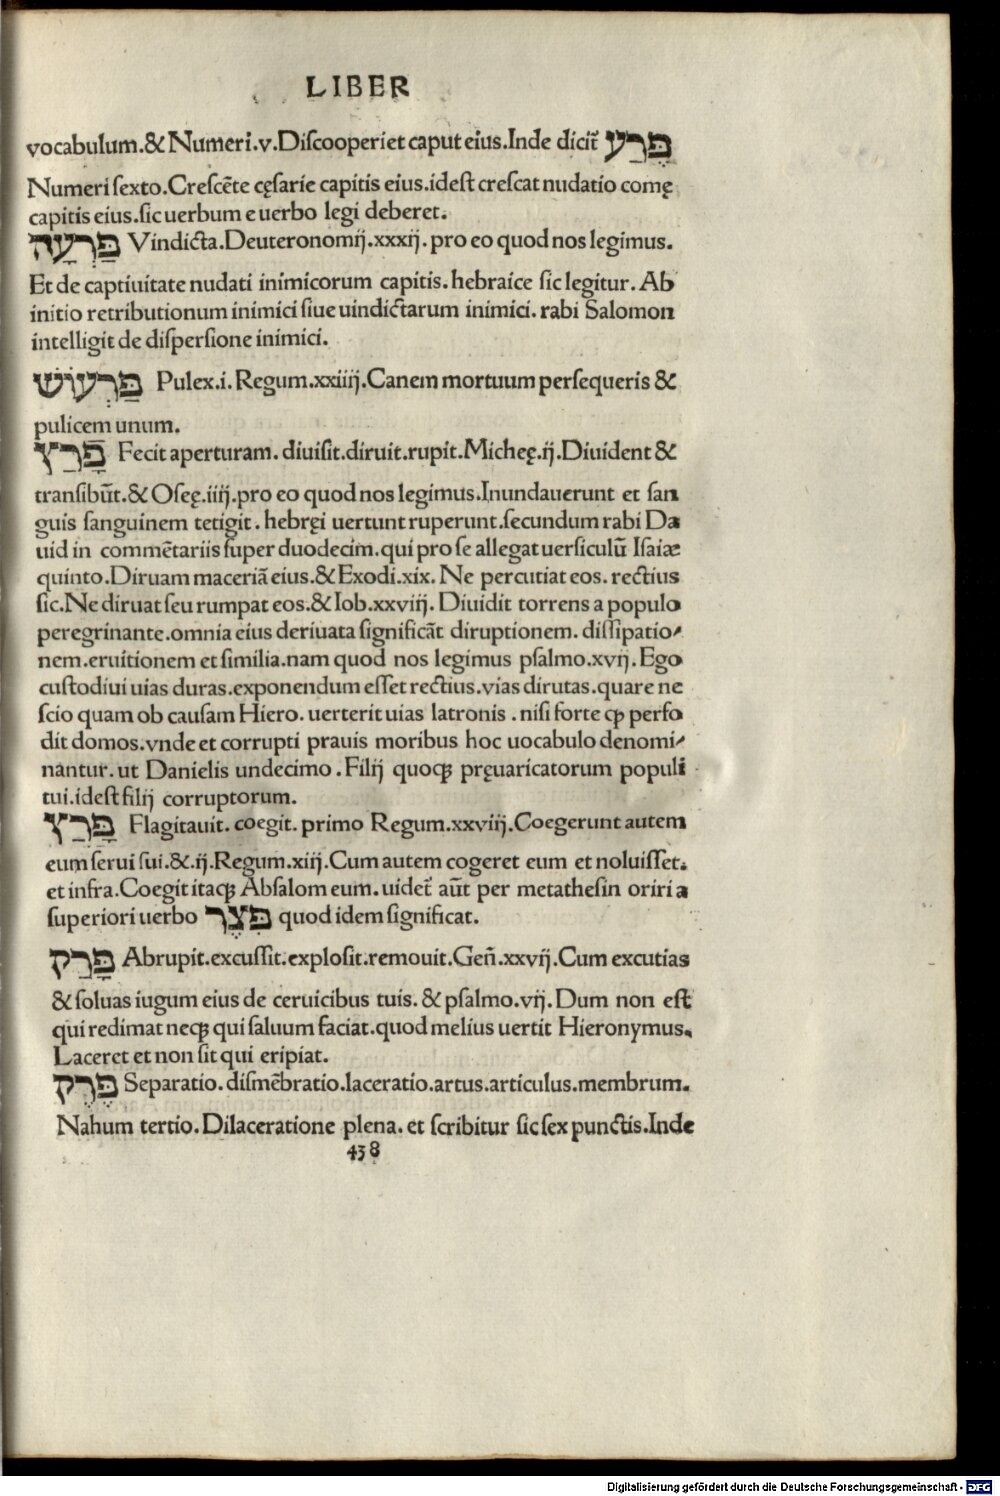 LIBER
vocabulum.&Numeri.v.Diſcooperiet caput eius.Inde dicit̃ פֶּרַע
Numeri ſexto.Creſcẽte cęſarie capitis eius.ideſt creſcat nudatio comę
capitis eius.ſic uerbum e uerbo legi deberet.
פַּרְעָה Vindicta.Deuteronomij.xxxij.pro eo quod nos legimus.
Et de captiuitate nudati inimicorum capitis.hebraice ſic legitur.Ab
initio retributionum inimici ſiue uindictarum inimici.rabi Salomon
intelligit de diſperſione inimici.
פַּרְעוֹשׁ Pulex.i.Regum.xxiiij.Canem mortuum perſequeris &
pulicem unum.
פָּרַץ Fecit aperturam.diuiſit.diruit.rupit.Micheę.ij.Diuident &
tranſibũt.&Oſeę.iiij.pro eo quod nos legimus.Inundauerunt et ſan
guis ſanguinem tetigit.hebręi uertunt ruperunt.ſecundum rabi Da
uid in commẽtariis ſuper duodecim.qui pro ſe allegat uerſiculũ Iſaiæ
quinto.Diruam maceriã eius.&Exodi.xix. Ne percutiat eos.rectius
ſic.Ne diruat ſeu rumpat eos.&Iob.xxviij. Diuidit torrens a populo
peregrinante.omnia eius deriuata ſignificãt diruptionem.diſſipatio⸗
nem.eruitionem et ſimilia.nam quod nos legimus pſalmo.xvij.Ego
cuſtodiui uias duras.exponendum eſſet rectius.vias dirutas.quare ne
ſcio quam ob cauſam Hiero.uerterit uias latronis.niſi forte ꝙ perfo
dit domos.vnde et corrupti prauis moribus hoc uocabulo denomi⸗
nantur.ut Danielis undecimo.Filij quoqꝫ pręuaricatorum populi
tui.ideſt filij corruptorum.
פָּרַץ Flagitauit.coegit.primo Regum.xxviij.Coegerunt autem
eum ſerui ſui.&.ij.Regum.xiij.Cum autem cogeret eum et noluiſſet.
et infra.Coegit itaqꝫ Abſalom eum.uidet̃ aũt per metatheſin oriri a
ſuperiori uerbo פִּצֶר quod idem ſignificat.
פָּרַק Abrupit.excuſſit.exploſit.remouit.Geñ.xxvij.Cum excutias
&ſoluas iugum eius de ceruicibus tuis.&pſalmo.vij.Dum non eſt
qui redimat neqꝫ qui ſaluum faciat.quod melius uertit Hieronymus.
Laceret et non ſit qui eripiat.
פֶּרֶק Separatio.diſmẽbratio.laceratio.artus.articulus.membrum.
Nahum tertio.Dilaceratione plena.et ſcribitur ſic ſex punctis.Inde
438
Digitalisierung gefördert durch die Deutsche Forschungsgemeinschaft - DFG